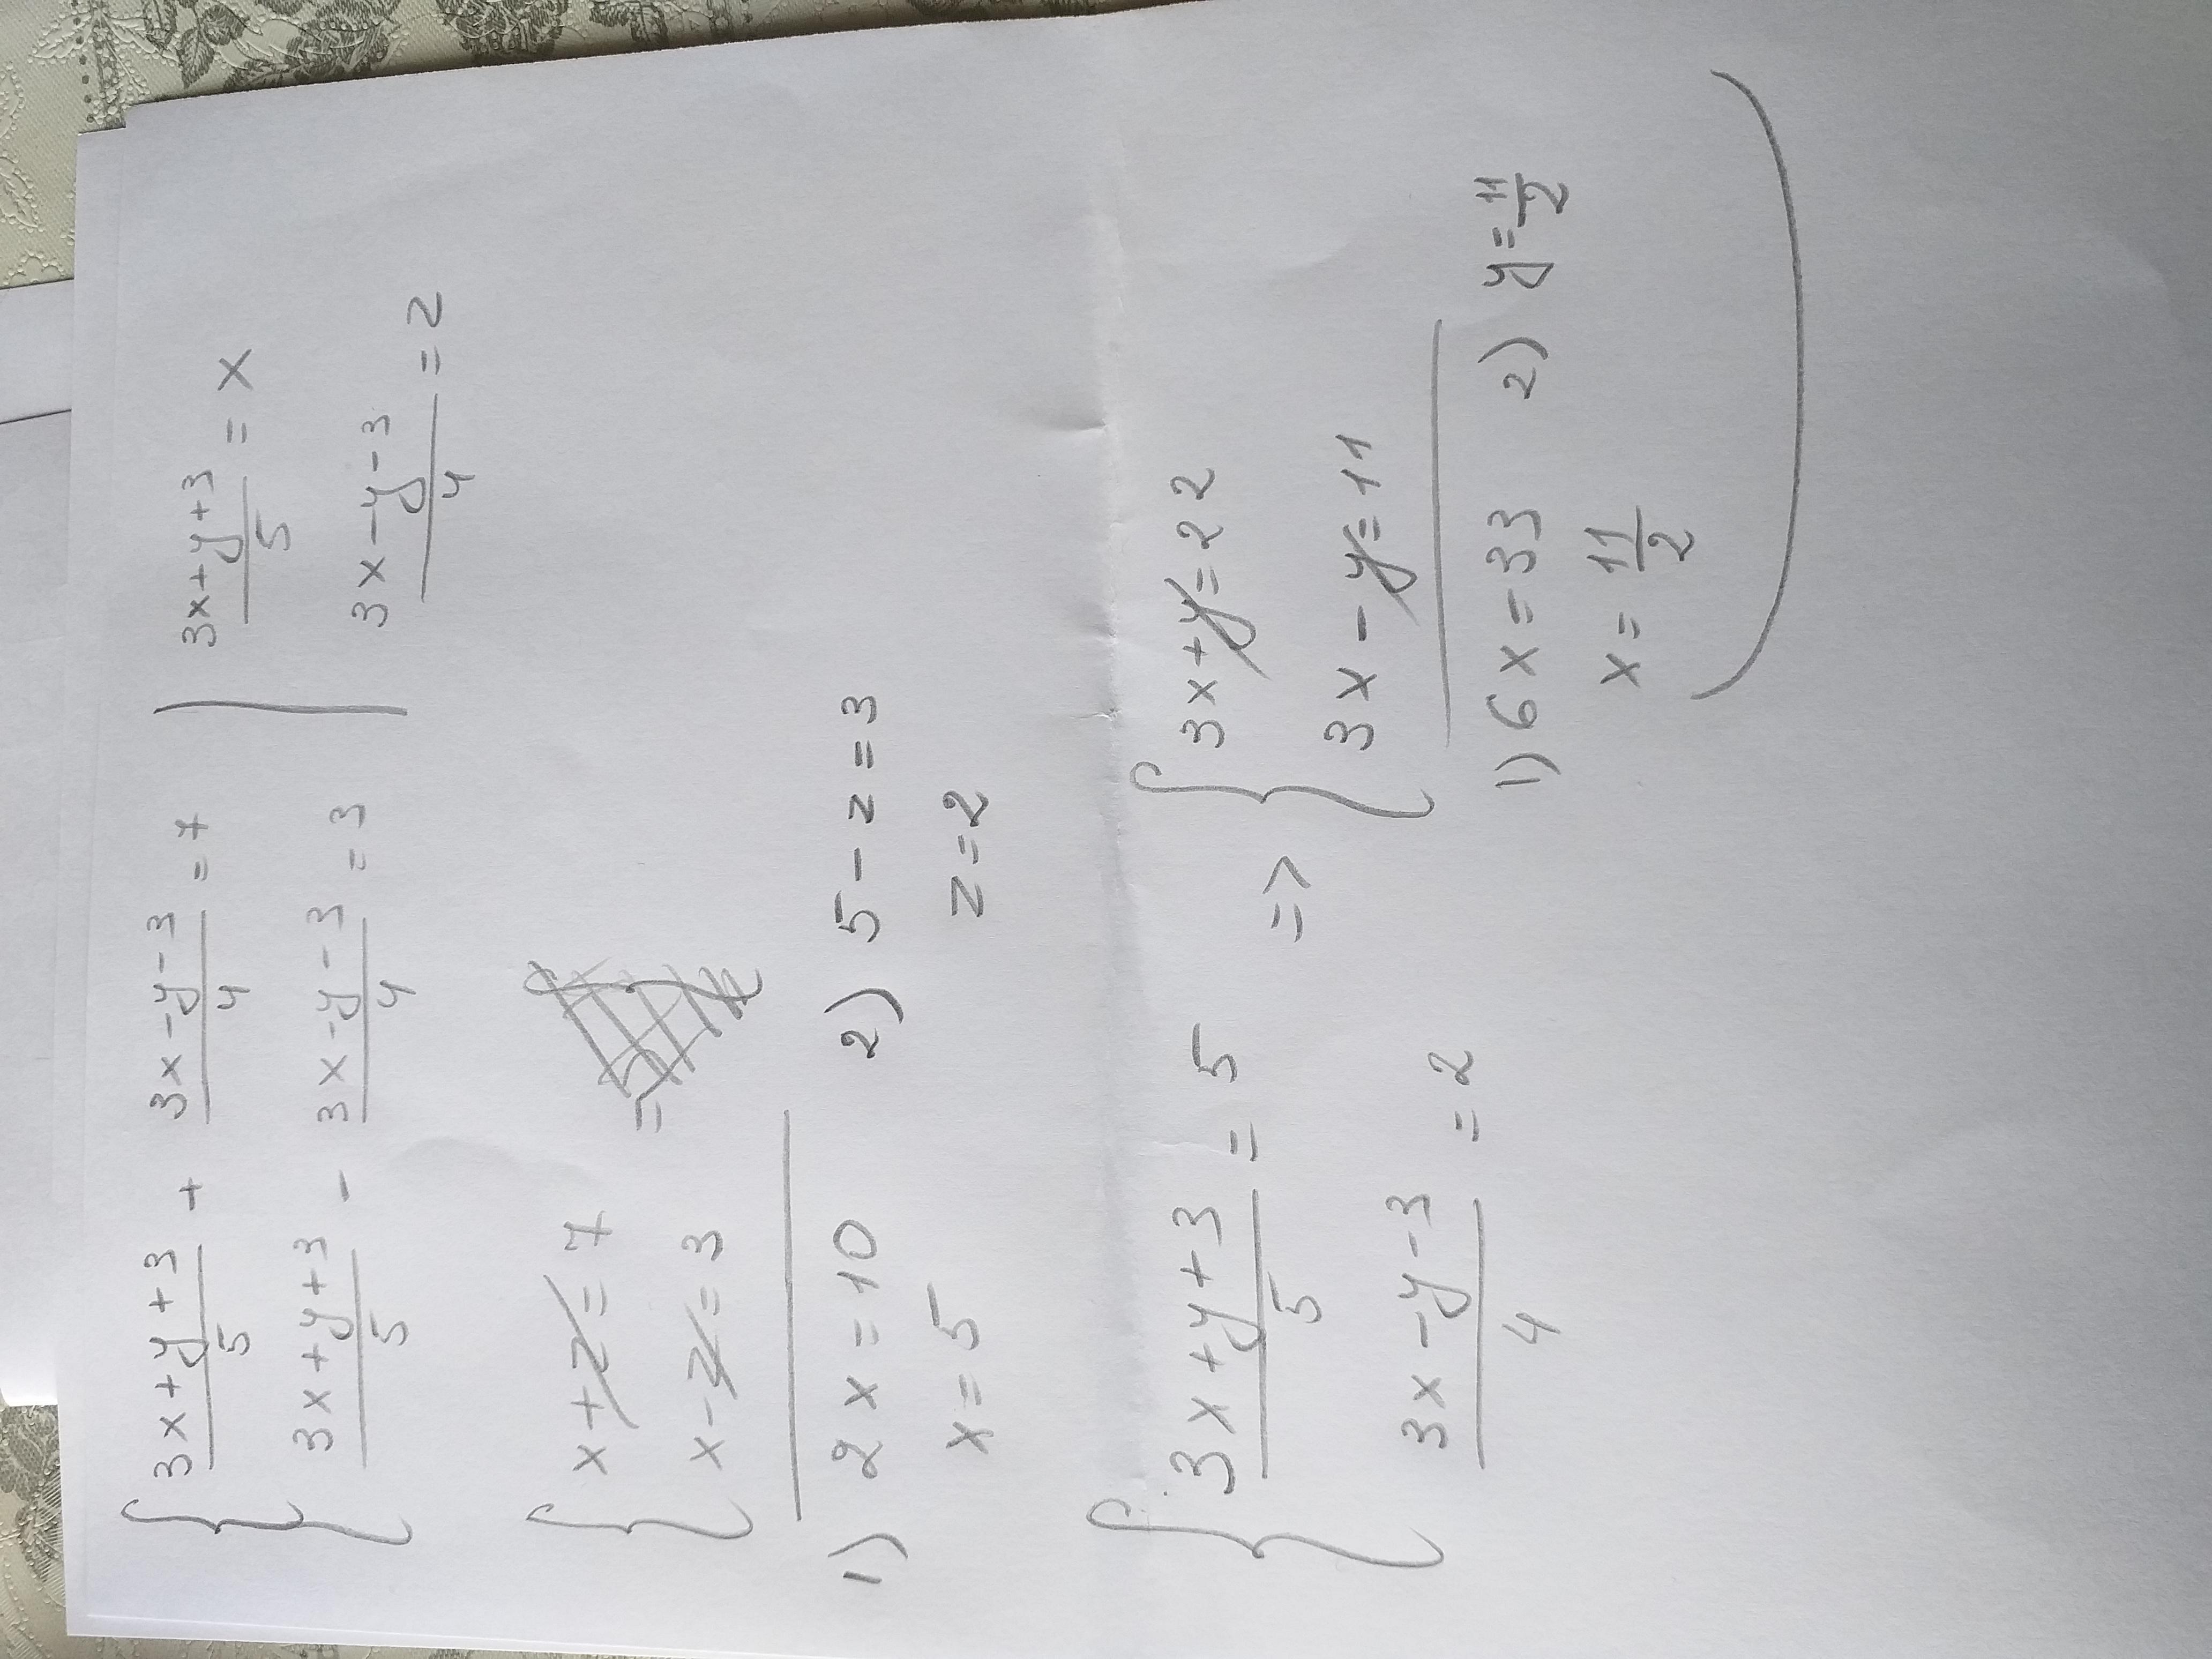 { (3x+y+3)/5 + (3x-y-3)/4 = 7 | (3x+y+3)/5 = x
{ (3x+y+3)/5 - (3x-y-3)/4 = 3 | (3x-y-3)/4 = z
{ x+z=7 =
{ x-z=3
1) 2x=10 2) 5-z=3
x=5 z=2
{ (3x+y+3)/5 = 5 => { 3x+y=22
{ (3x-y-3)/4 = 2 { 3x-y=11
1) 6x=33 2) y=11/2
x=11/2